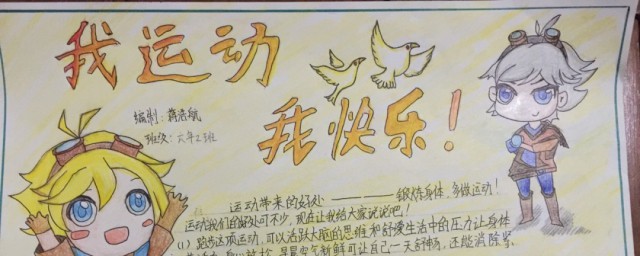 我运动
我快乐！
编制：蒋浩航
班级：六年2班
运动带来的好处————锻炼身体，多做运动！
运动我们的好处可不少，现在让我给大家说说吧！
(1) 跑步这项运动，可以活跃大脑的思维和舒缓生活中的压力让身体
早晨空气新鲜可让自己一天舒畅，还能消除紧